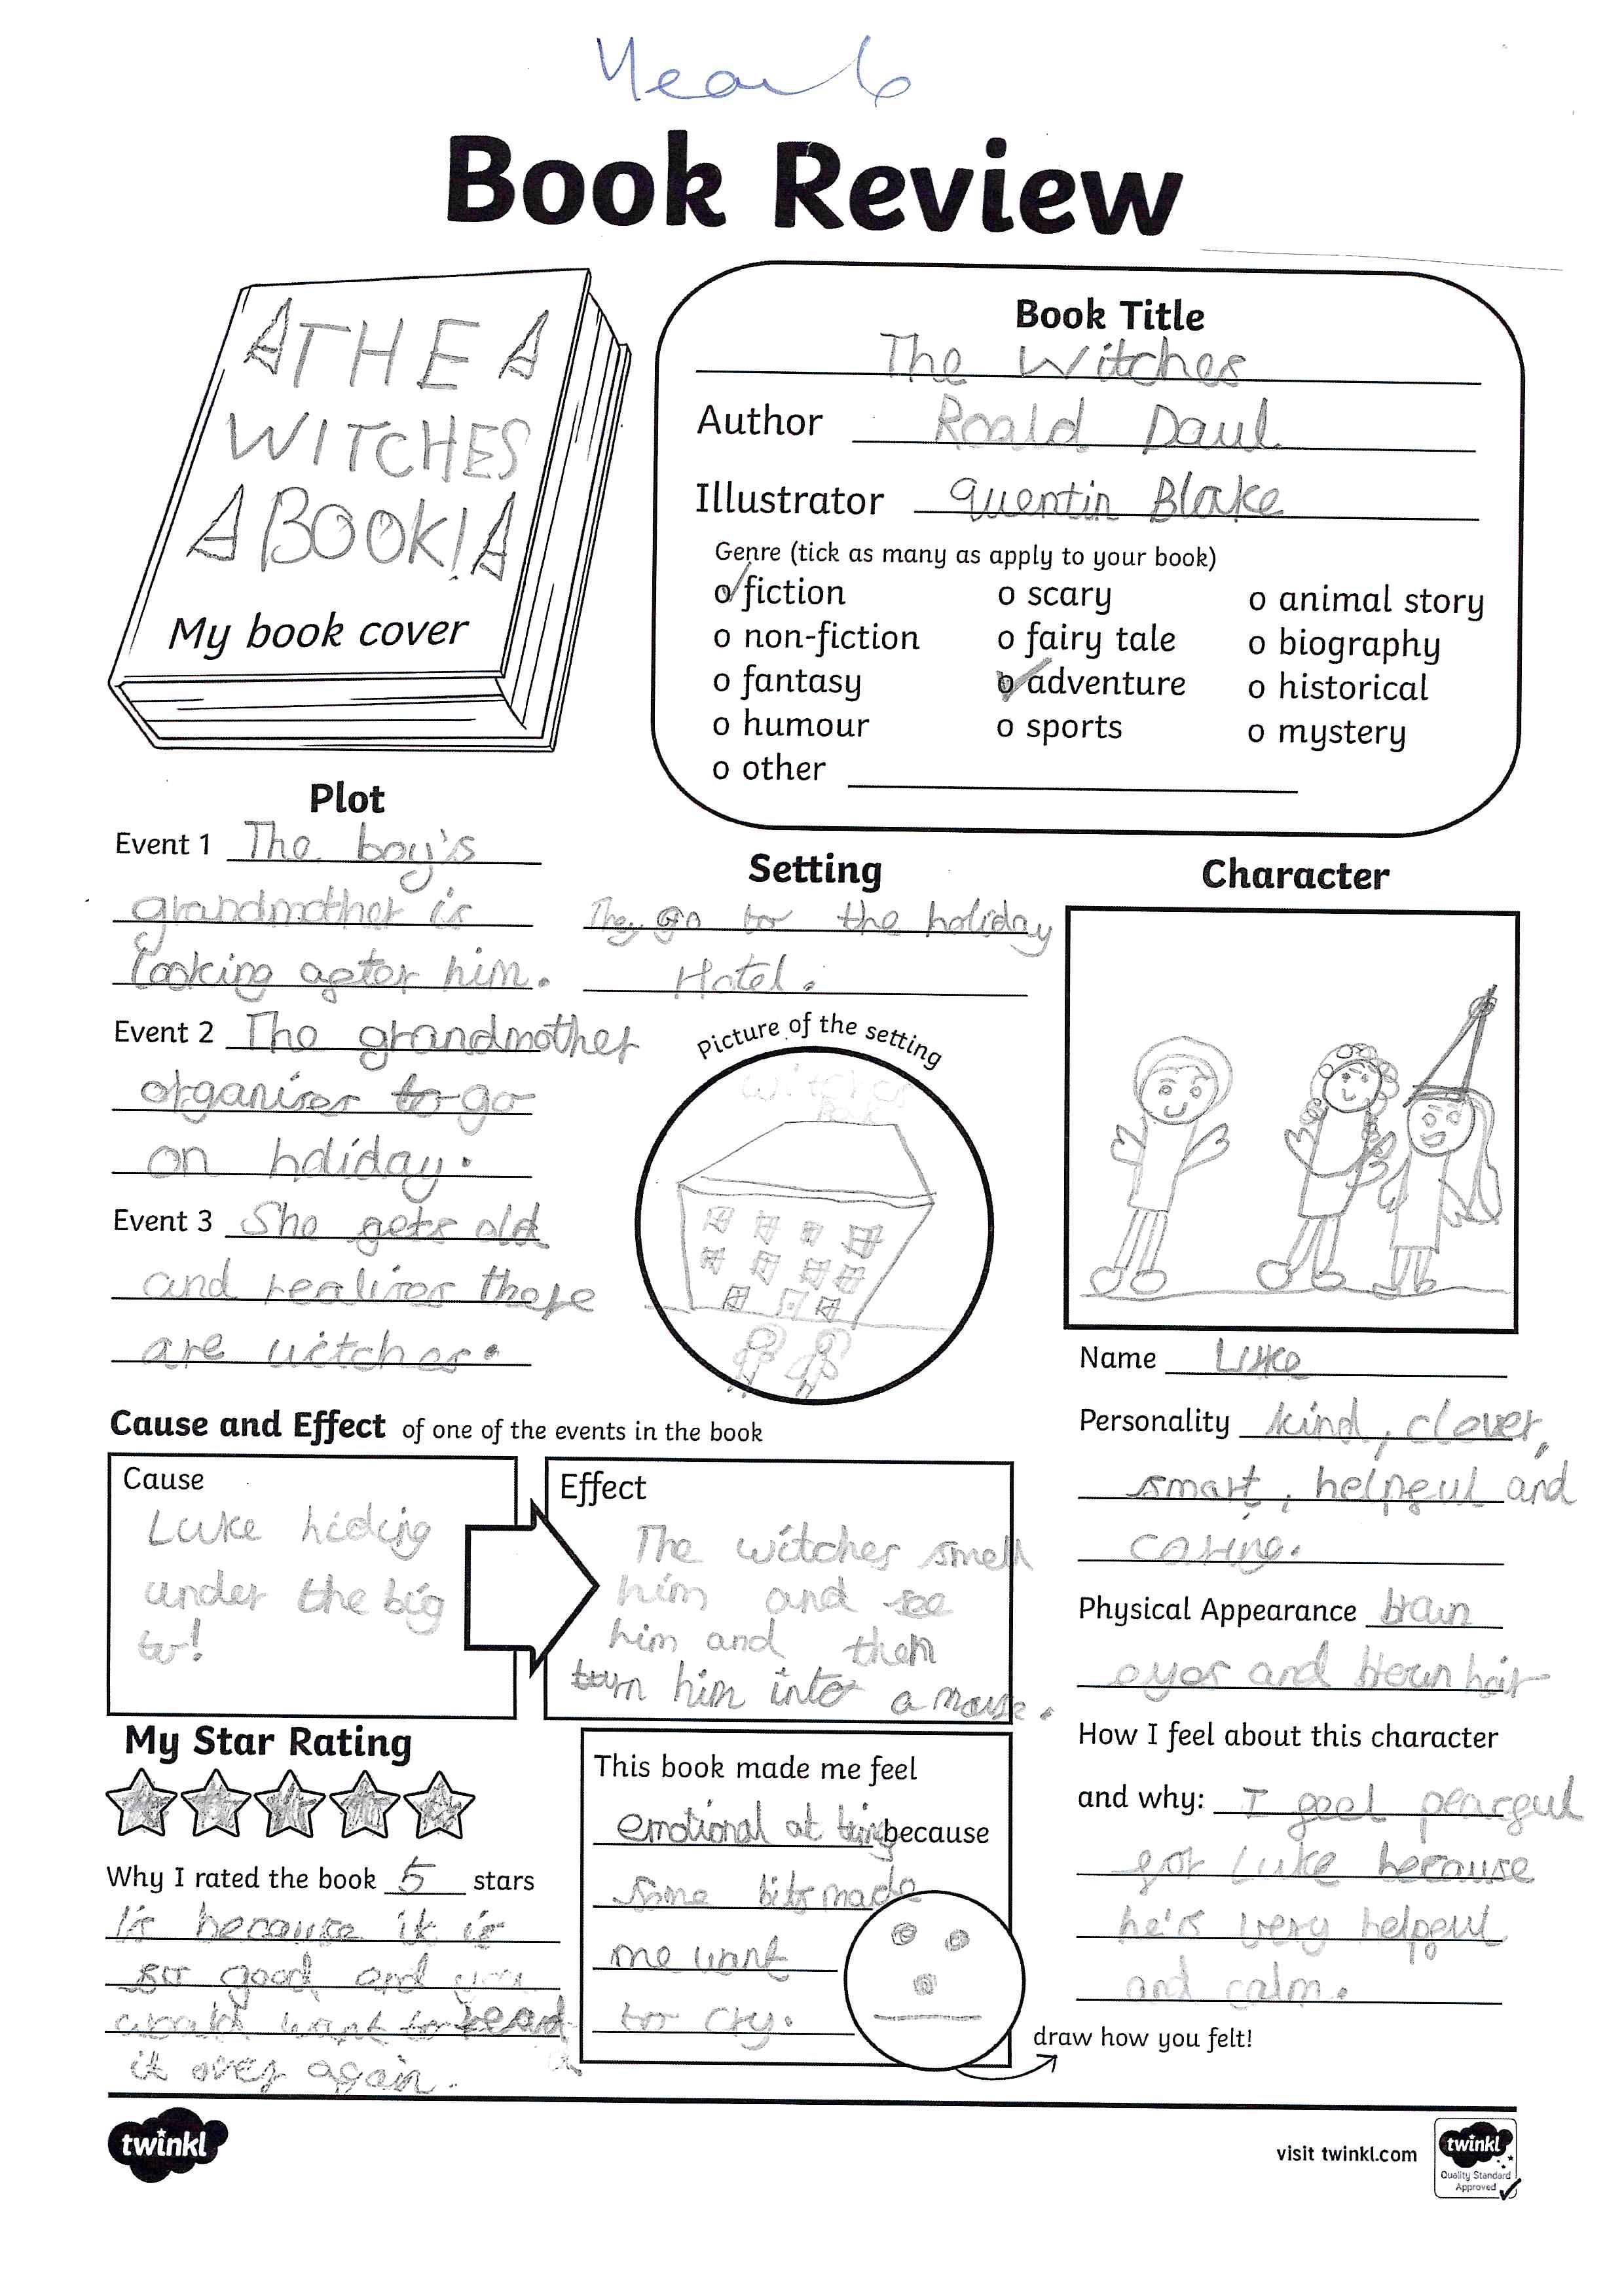 Year 6
Book Review
THE
WITCHES
BOOK!
My book cover
Book Title
The Witches
Author Roald Daul
Illustrator Quentin Blake
Genre (tick as many as apply to your book)
o fiction
o non-fiction
o fantasy
o humour
o other
o scary
o fairy tale
o adventure
o sports
o animal story
o biography
o historical
o mystery
Plot
Event 1 The boy's
grandmother is
looking after him.
Event 2 The grandmother
organises to go
on holiday.
Event 3 She gets old
and realises there
are witches.
Setting
They go to the holiday
Hotel.
Picture of the setting
witches
Character
Name Luke
Personality kind, clever,
smart, helpful and
caring.
Physical Appearance brown
eyes and brown hair
How I feel about this character
and why: I feel
for Luke because
he's very helpful
and calm.
Cause and Effect of one of the events in the book
Cause
Luke hiding
under the big
Effect
The witches smell
him and see
him and then
turn him into a mouse.
My Star Rating
Why I rated the book 5 stars
Is because it is
so good and you
would want to read
it over again.
This book made me feel
emotional at because
some bits made
me want
to cry.
draw how you felt!
twinkl
visit twinkl.com
twinkl
Quality Standard
Approved